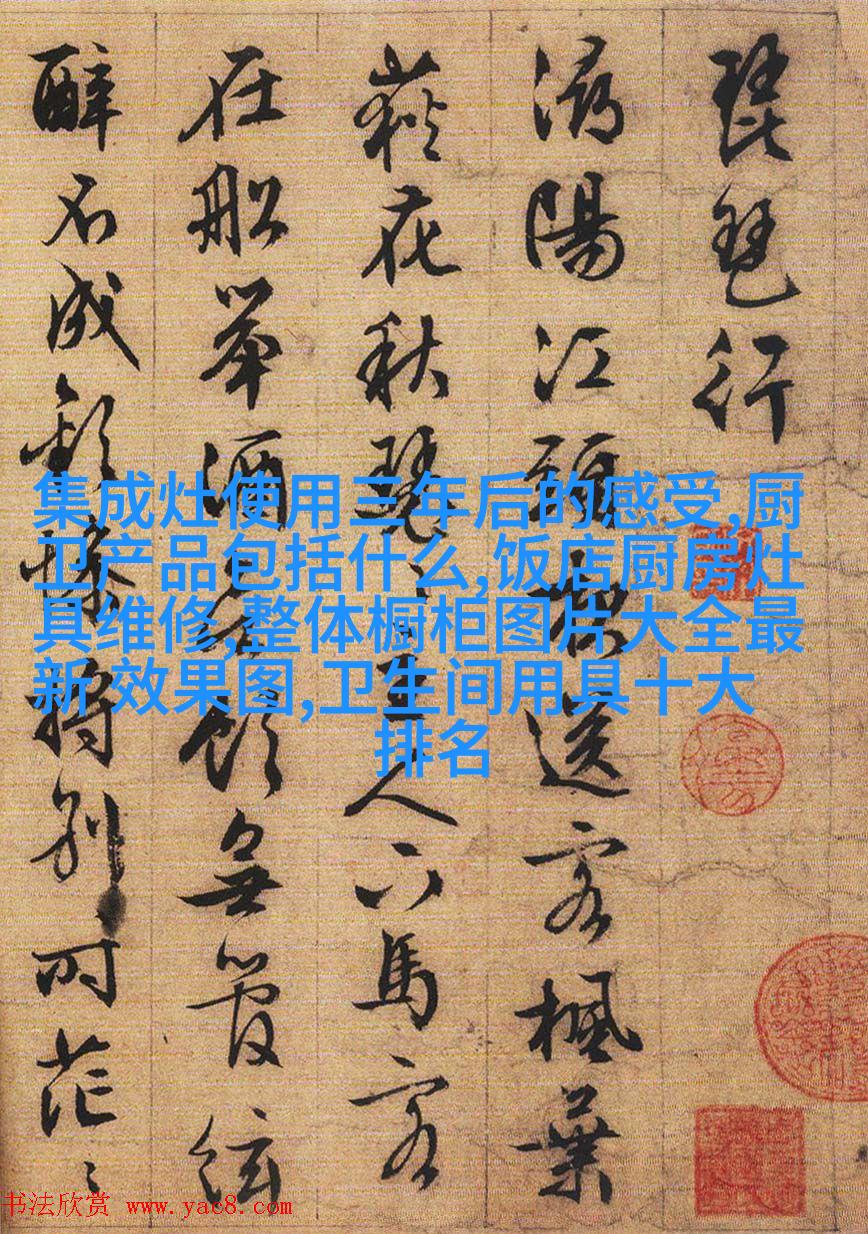 琵琶行
潯陽江頭夜送客楓葉
荻花秋瑟〻主人下馬客
在船舉酒欲飲無管絃
醉不成歡慘將別時茫〻
集成灶使用三年后的感受,厨
卫产品包括什么,饭店厨房灶
具维修,整体橱柜图片大全最
新 效果图,卫生间用具十大
排名
书法欣赏 www.yac8.com